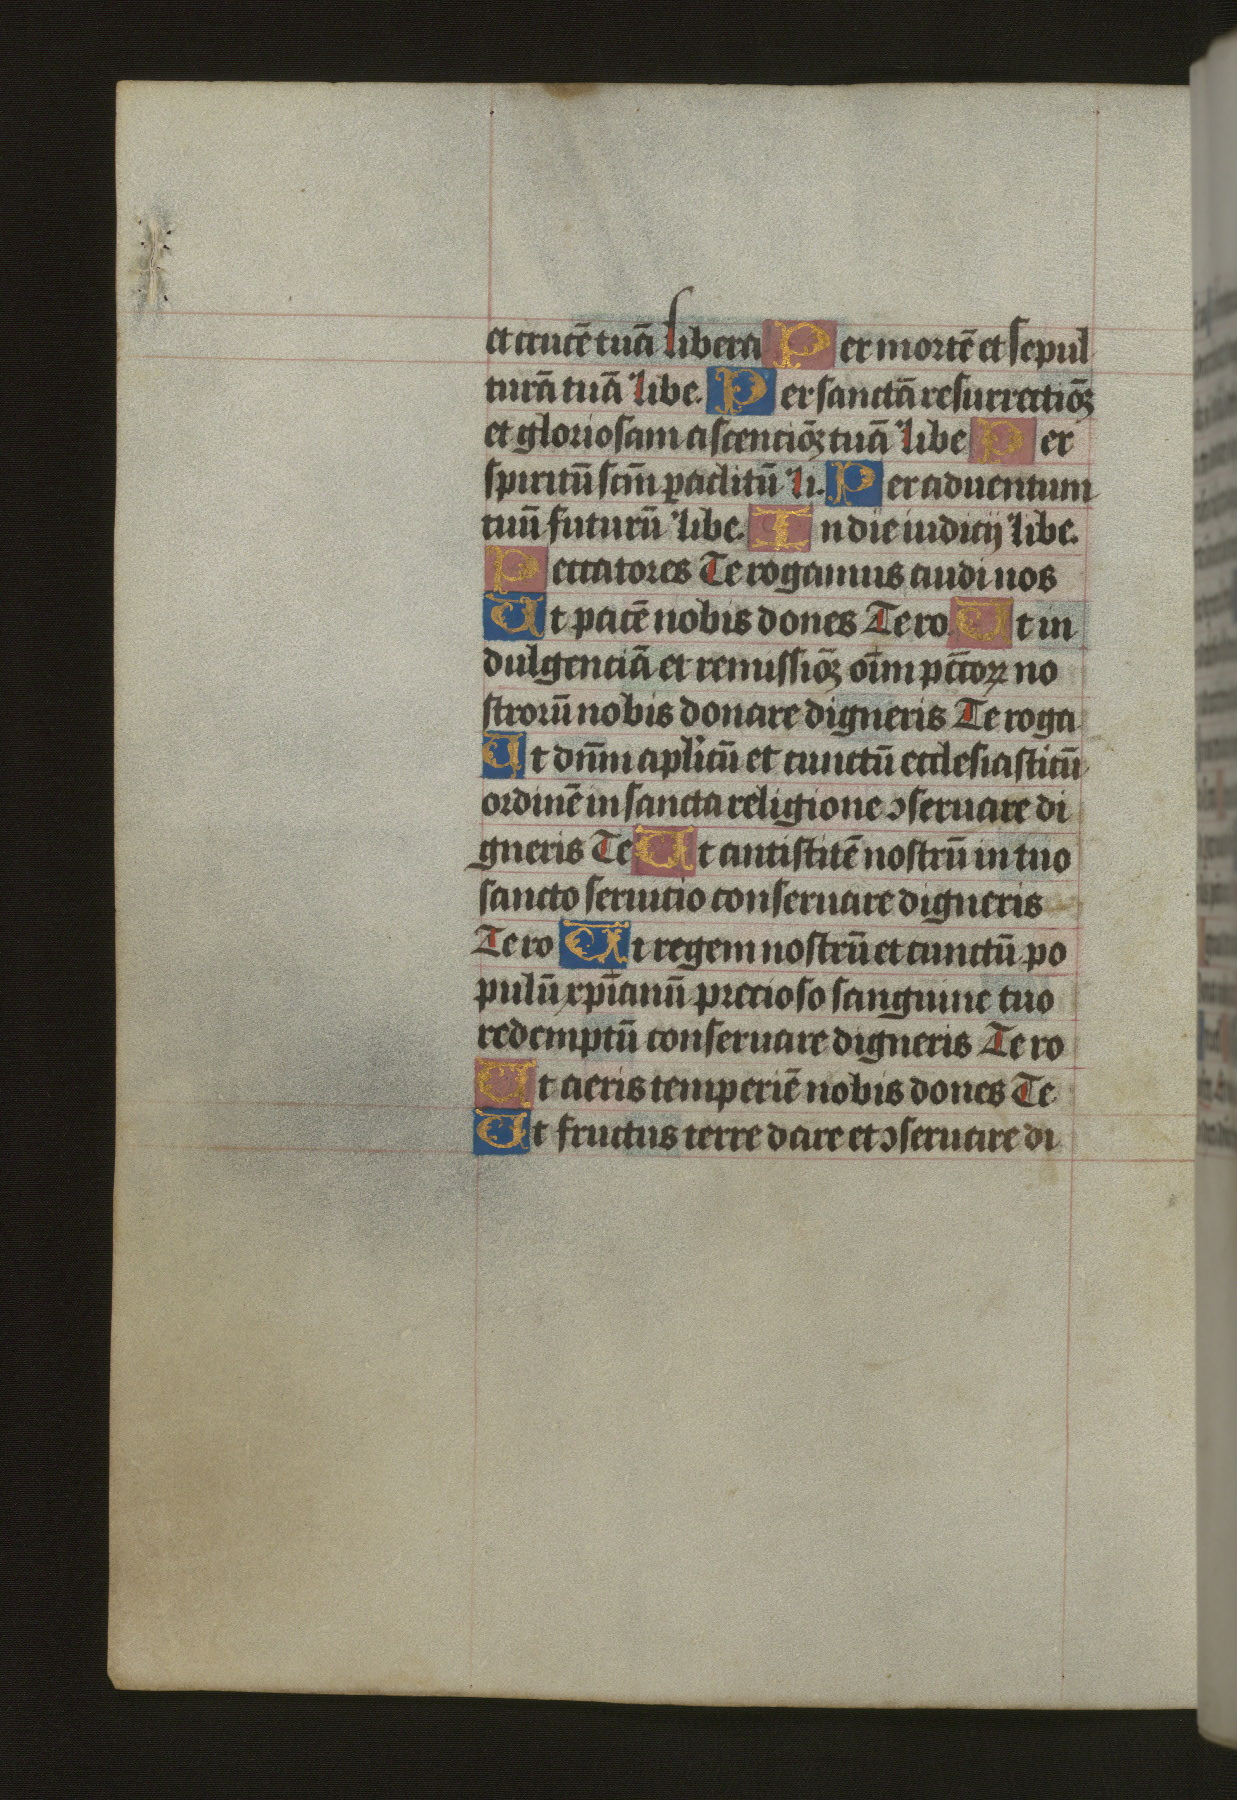 et crucē tuā libera Per mortē et sepul
turā tuā libe. Per sanctā resurrectiōꝫ
et gloriosam ascenciōꝫ tuā libe Per
spiritū scm̄ ꝑaclitū li. Per aduentum
tuū futurū libe. In die iudicij libe.
Peccatores Te rogamus audi nos
Ut pacē nobis dones Te ro. Ut in
dulgenciā et remissiōꝫ oīm pctōꝝ no
strorū nobis donare digneris Te roga
Ut dn̄m aplicū et cunctū ecclesiasticū
ordinē in sancta religione ↄseruare di
gneris Te Ut antistitē nostrū in tuo
sancto seruicio conseruare digneris
Te ro Ut regem nostrū et cunctū po
pulū xp̄ianū precioso sanguine tuo
redemptū conseruare digneris Te ro
Ut aeris temperiē nobis dones Te
Ut fructus terre dare et ↄseruare di